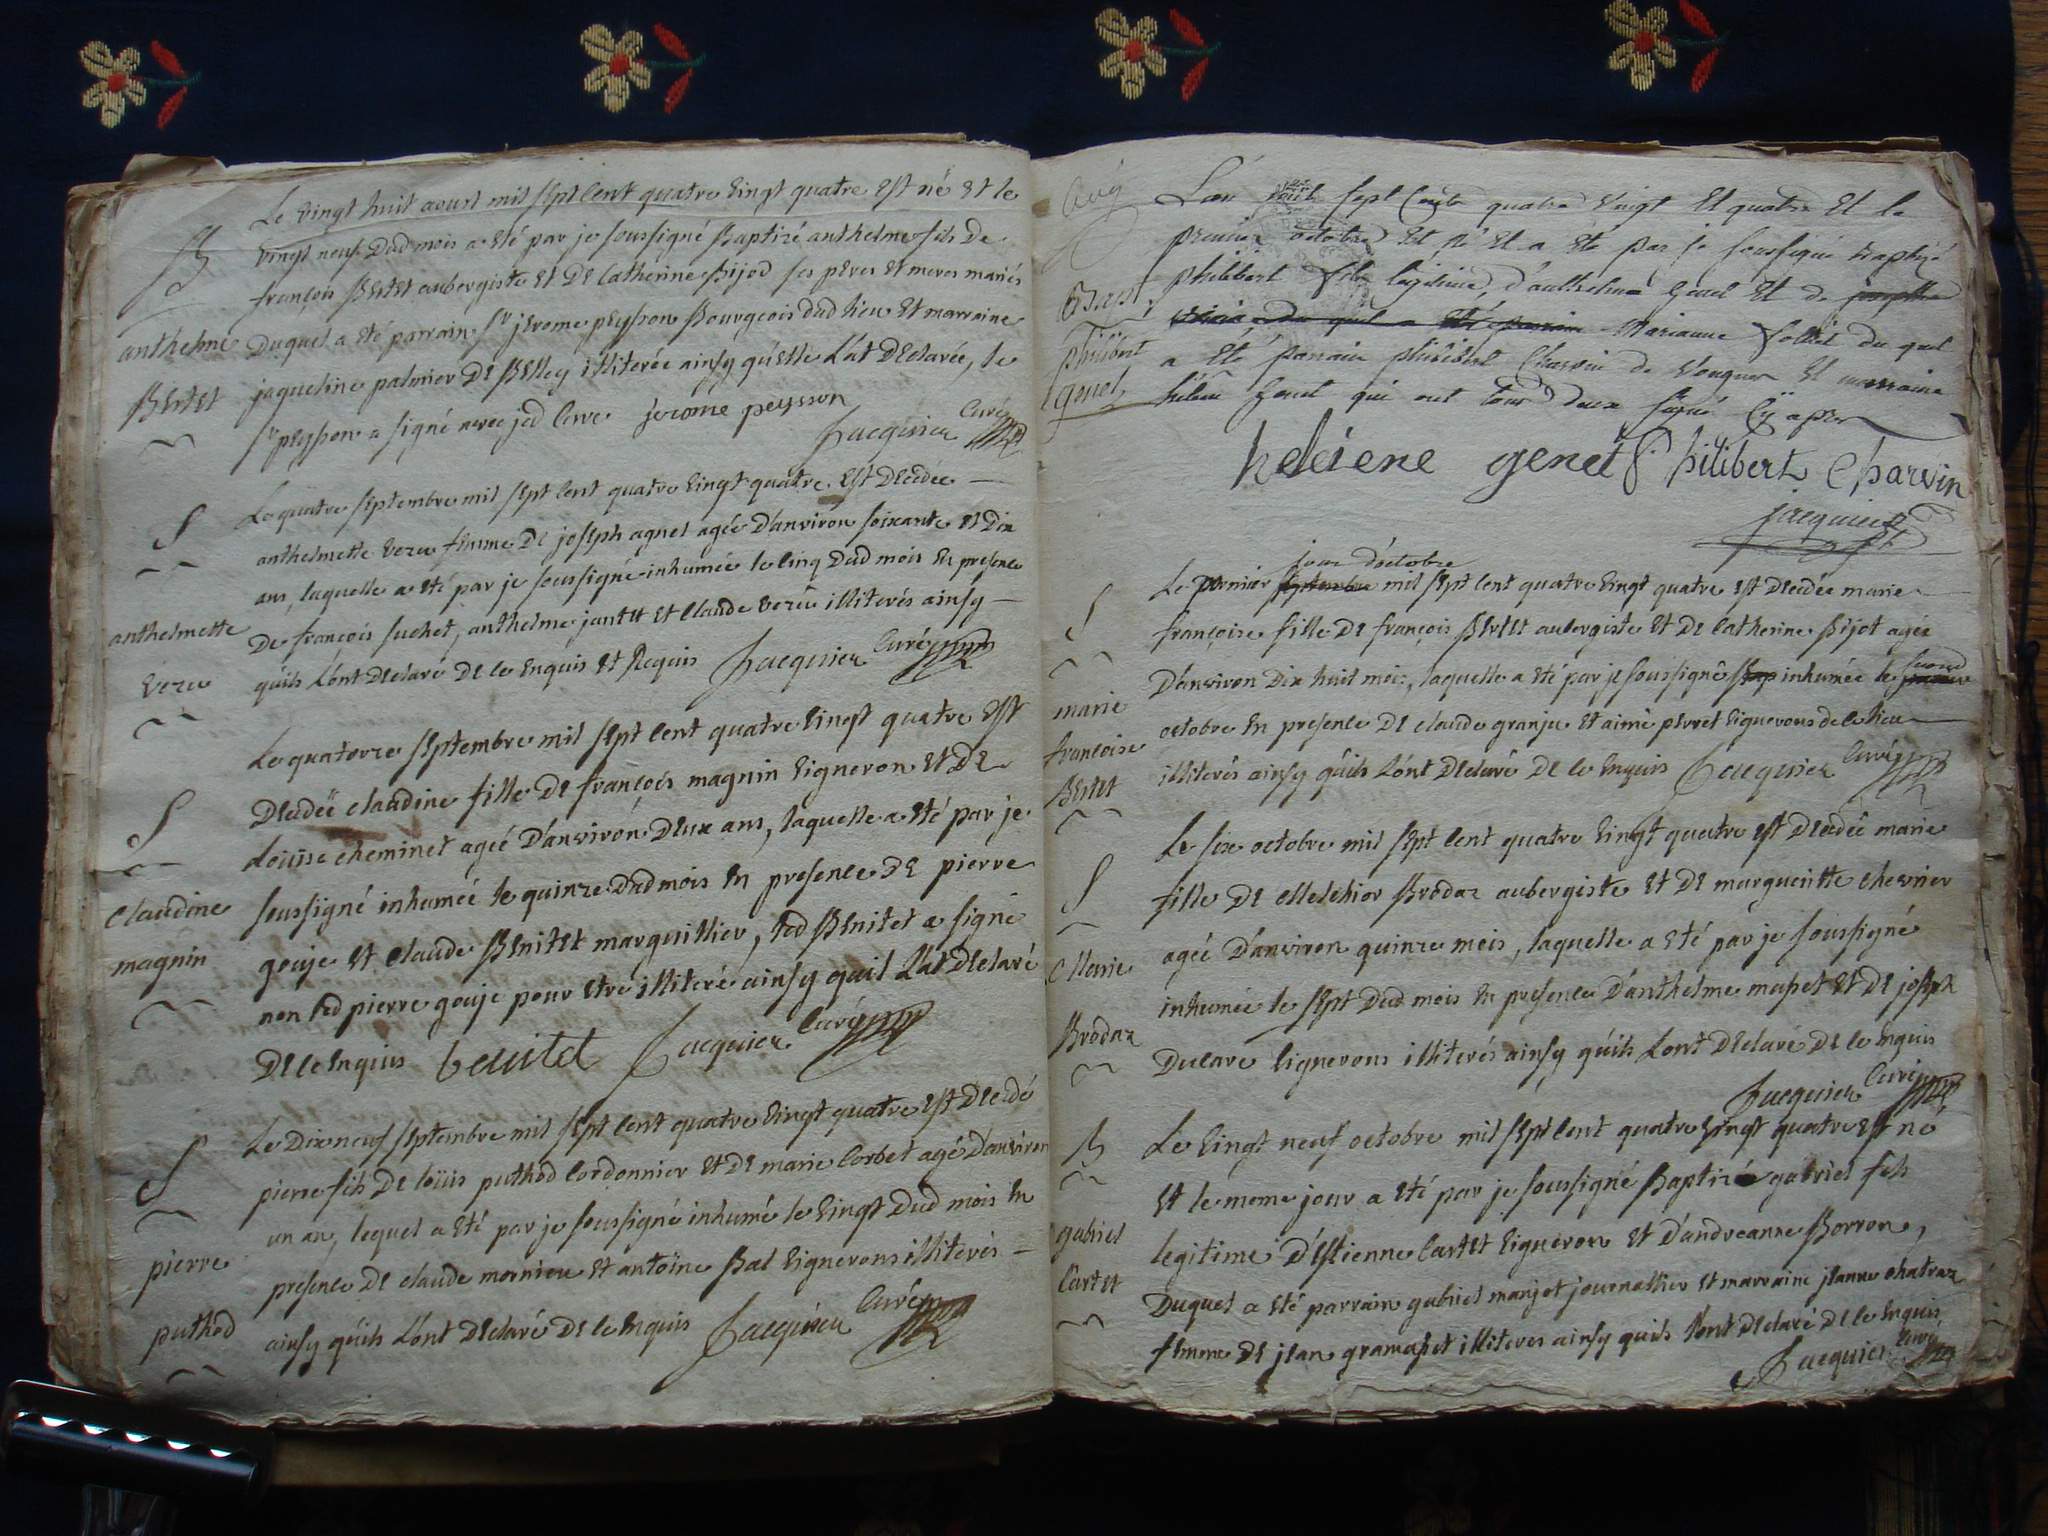 Le vingt huit aoust mil sept cent quatre vingt quatre est né et le
B
vingt neuf dud mois a eté par je soussigné Baptizé anthelme fils de
françois Bertet aubergiste et de catherine Bijod ses peres et meres mariés
anthelme
Duquel a eté parrain sr jerome peysson Bourgeois dud lieu et marraine
Bertet
jaqueline palmier de Belley illiterée ainsy qu'elle l'at declarée, le
sr peysson a signé avec jed curé jerome peysson
Jacquier Curé
S
Le quatre septembre mil sept cent quatre vingt quatre est decedée
anthelmette veru femme de joseph agnel agée d'anviron soixante et dix
ans, laquelle a eté par je soussigné inhumée le cinq dud mois en presence
anthelmette
veru
de françois suchet, anthelme jantet et claude veru illiterés ainsy
qu'ils l'ont declaré de ce enquis et requis Jacquier Curé
S
Le quatorze septembre mil sept cent quatre vingt quatre est
decedée claudine fille de françois magnin vigneron et de
Loüise cheminet ageé d'anviron deux ans, laquelle a eté par je
claudine
magnin
soussigné inhumeé le quinze dud mois en presence de pierre
gouje et claude Benitet marguillier, led Benitet a signé
non led pierre gouje pour etre illiteré ainsy quil l'at declaré
de ce enquis benitet Jacquier Curé
S
Le dix neuf septembre mil sept cent quatre vingt quatre est decedé
pierre fils de loüis puthod cordonnier et de marie corbet agé d'anviron
un an, lequel a eté par je soussigné inhumé le vingt dud mois en
pierre
puthod
presence de claude mornieu et antoine Bal vignerons illiterés
ainsy qu'ils l'ont declaré de ce enquis Jacquier Curé
L'an mil sept cents quatre vingt et quatre et le
premier octobre est né et a eté par je soussigné baptizé
Bapt.
philibert
genet
philibert fils legitime d'anthelme genet et de
Marianne follliet du quel
a eté parrain philibert Charvin de vongnes et marraine
helene genet qui ont tous deux signé cy apres
heleiene genet philibert Charvin
jacquier
S
jour d'octobre
Le premier septembre mil sept cent quatre vingt quatre est decedée marie
françoise fille de françois Bertet aubergiste et de catherine Bijot agée
second
d'anviron dix huit mois, laquelle a eté par je soussigné inhumée le premier
marie
francoise
Bertet
octobre en presence de claude granju et aimé perret vignerons de ce lieu
illiterés ainsy qu'ils l'ont declaré de ce enquis Jacquier Curé
S
Le six octobre mil sept cent quatre vingt quatre est decedeé marie
fille de Melchior Brodaz aubergiste et de margueritte chevrier
Marie
Brodaz
agée d'anviron quinze mois, laquelle a eté par je soussigné
inhumée le sept dud mois en presence d'anthelme masset et de joseph
Duclare vignerons illiterés ainsy qu'ils l'ont declaré de ce enquis
Jacquier Curé
B
Le vingt neuf octobre mil sept cent quatre vingt quatre est né
et le meme jour a eté par je soussigné Baptizé gabriel fils
gabriel
Cartet
legitime d'Estienne Cartet vigneron et d'andreanne Borron,
Duquel a eté parrain gabriel manjot journallier et marraine jeanne chatraz
femme de jean gramaset illiteres ainsy quils l'ont declaré de ce enquis,
Jacquier Curé